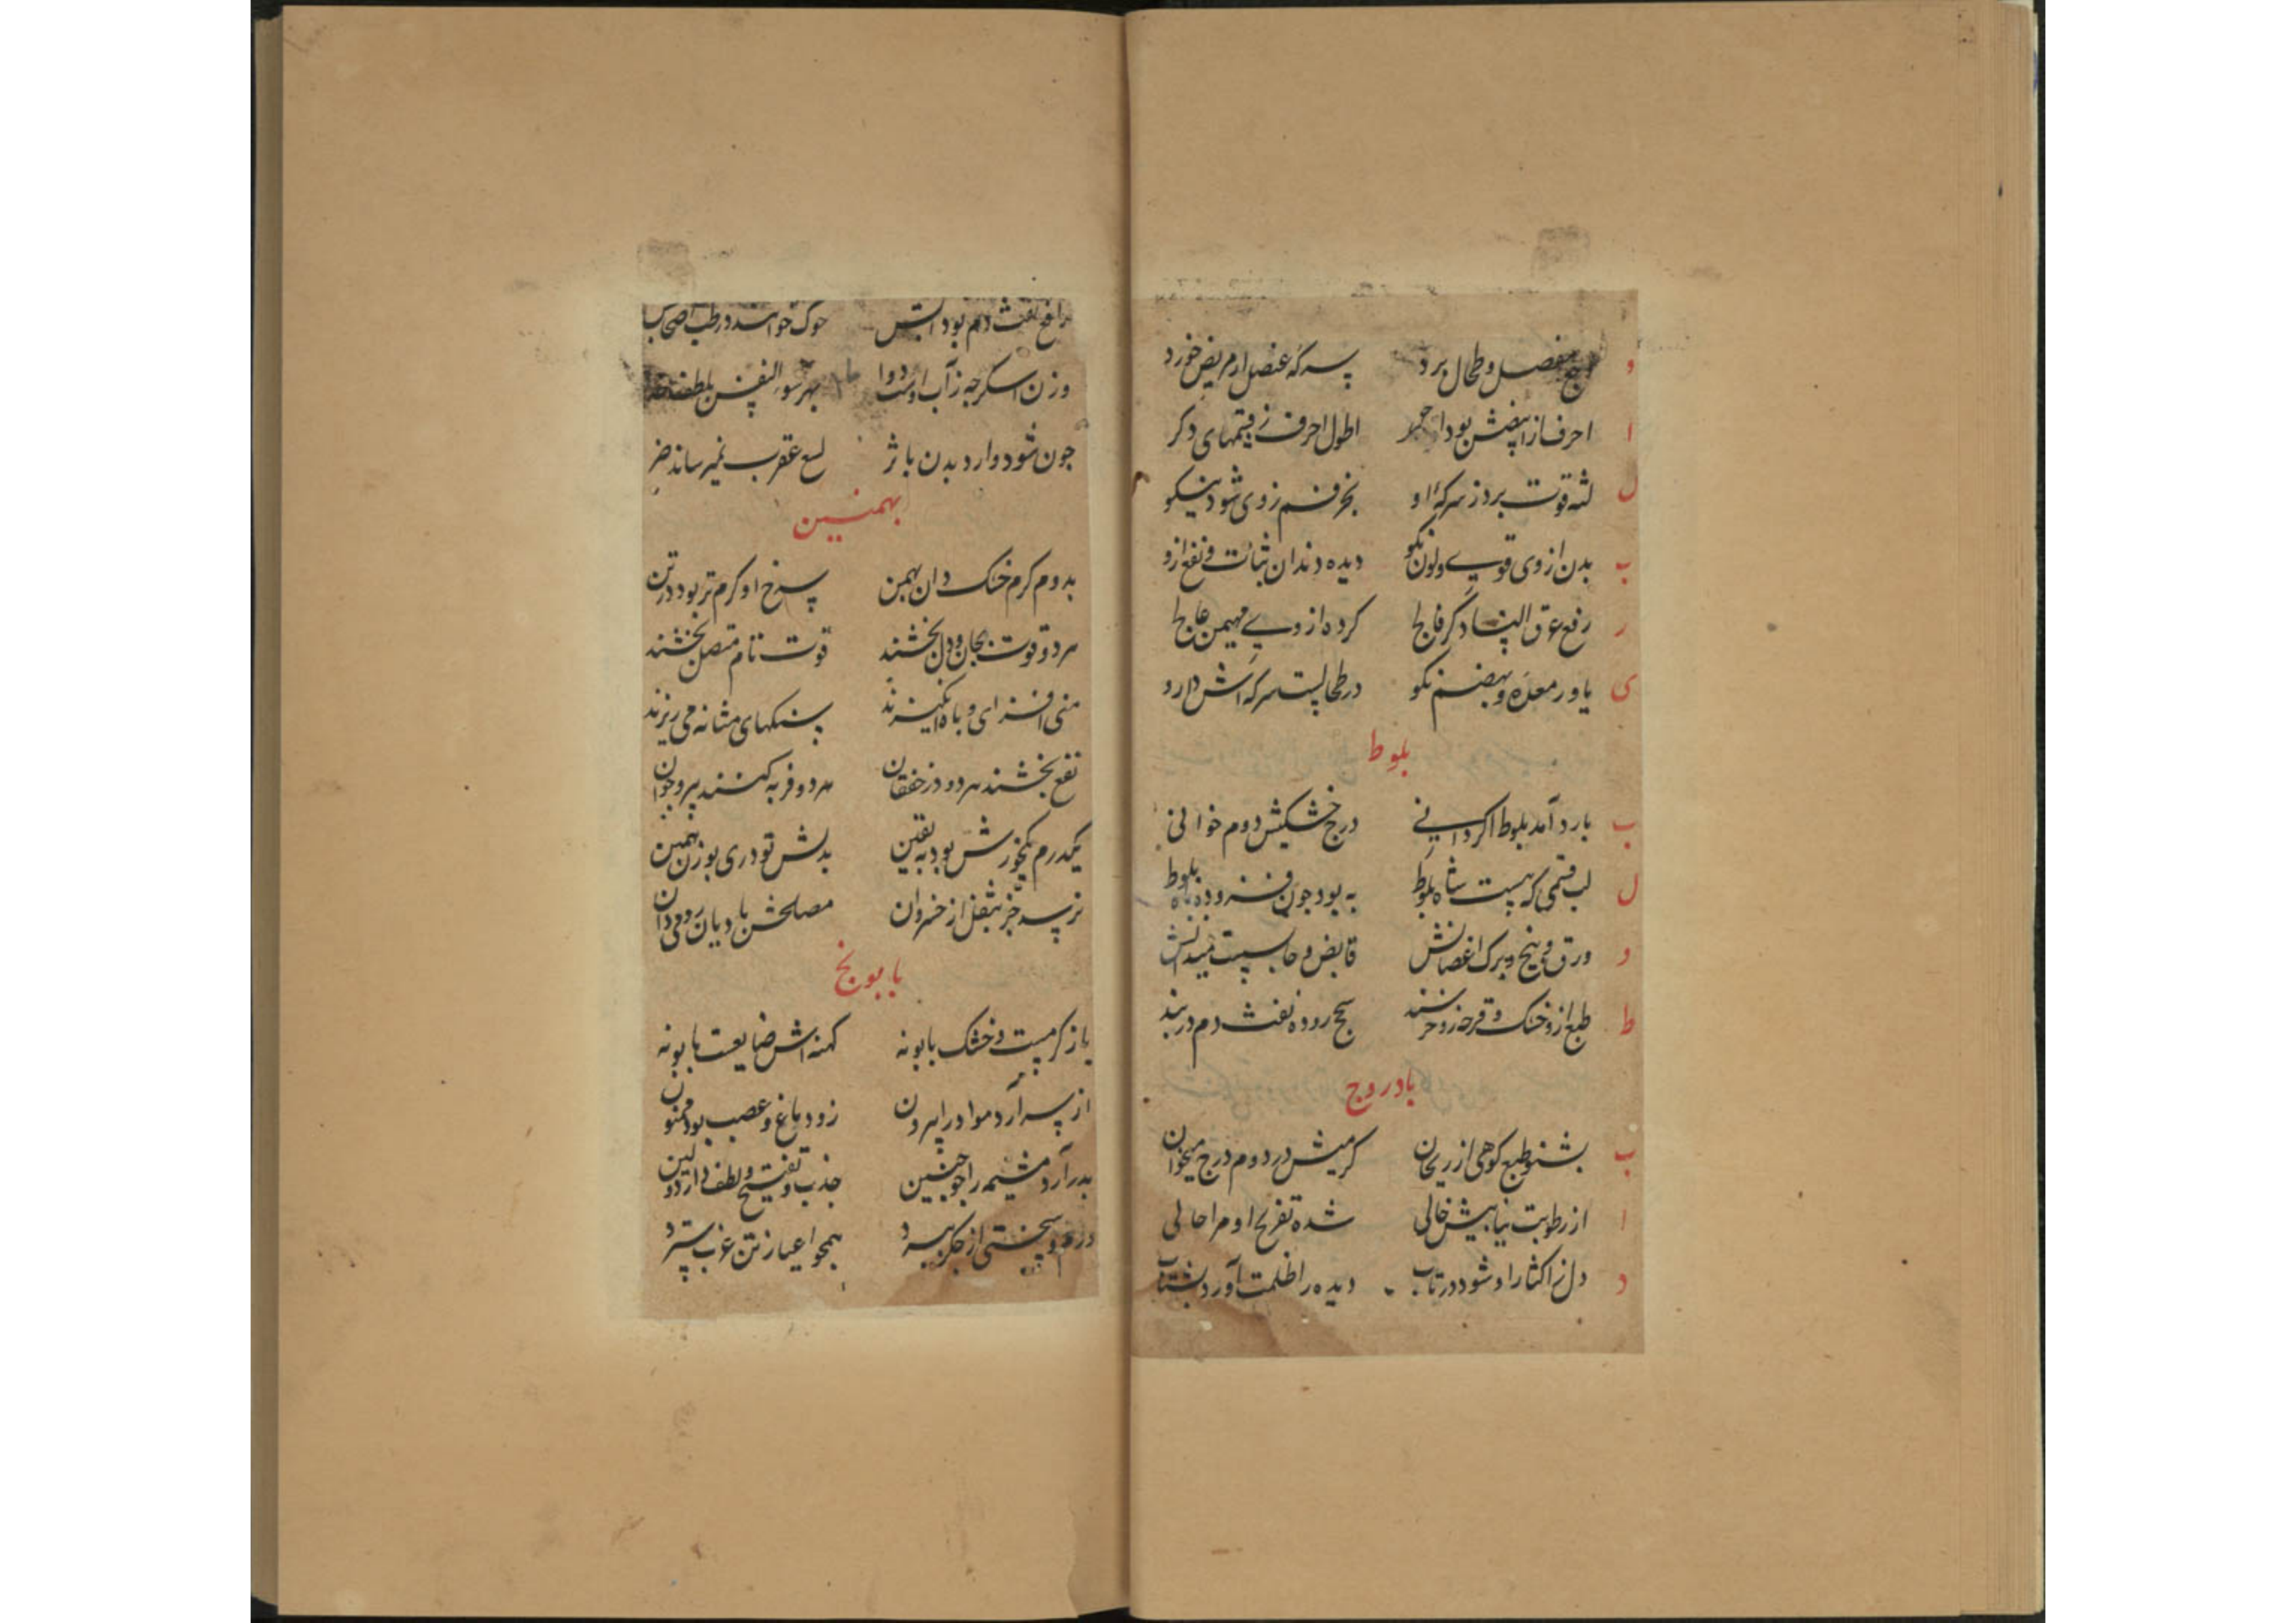 و مفصل و طحال برد سرکه عنصل ار مریض خورد
ا احرف از ابیضش بود احمر اطول احرف ز قسمهای دکر
ل لثه قوت برد ز سرکهٔ او بخر فم ز وی شود نیکو
ب بدن از وی قوی و لون نکو دیده دندان ثبات و نفع ازو
ر رفع عرق النسا دکر فالج کرده از وی مهیمن عالج
ی یاور معده و بهضم نکو در طحالست سرکه اش دارو
بلوط
ب بارد آمد بلوط اکر دانی درج خشکیش دوم خوانی
ل لب قسمی که هست شاه بلوط به بود چون فزود باه بلوط
و ورق و بیخ و برک اغصانش قابض و حابست میدانش
ط طبع ازو خشک و قرحه زو خرسند سحج روده نفث دم در بند
بادروج
ب بشنو طبع کوهی از ریحان کرمیش در دوم درج میخوان
ا از رطوبت نیابیش خالی شده تفریح او مرا حالی
د دل ز اکثار او شود در تاب دیده را ظلمت آورد بشتاب
رافع نفث دم بود آبش حوک خوانند در طب اصحابش
وزن اسکرجه ز آب اوست دوا بهر سوء النفس
چون شود وارد بدن باثر لسع عقرب نمیرساند ضر
بهمنین
بدوم کرم خشک دان بهمن سرخ او کرم تر بود در تن
هر دو قوت بجان و دل بخشند قوت تام متصل بخشند
منی افزای و باه انکیزند سنکهای مثانه می ریزند
نفع بخشند هر دو در خفقان هر دو فربه کنند پیر و جوان
یکدرم خورش بود به یقین بدلش تودری بوزن بهمین
نرسد جز بثفل از خسروان مصلحش بادیان رومی دان
بابونج
باز کرمست و خشک بابونه کهنه اش ضایعست بابونه
از سر آرد مواد را بیرون زو دماغ و عصب بود ممنون
بدر آرد مشیمه را چو جنین جذب و تفتیح و لطف دارد و لین
و سختی از جکر ببرد همچو اعیا ز تن غرب سترد